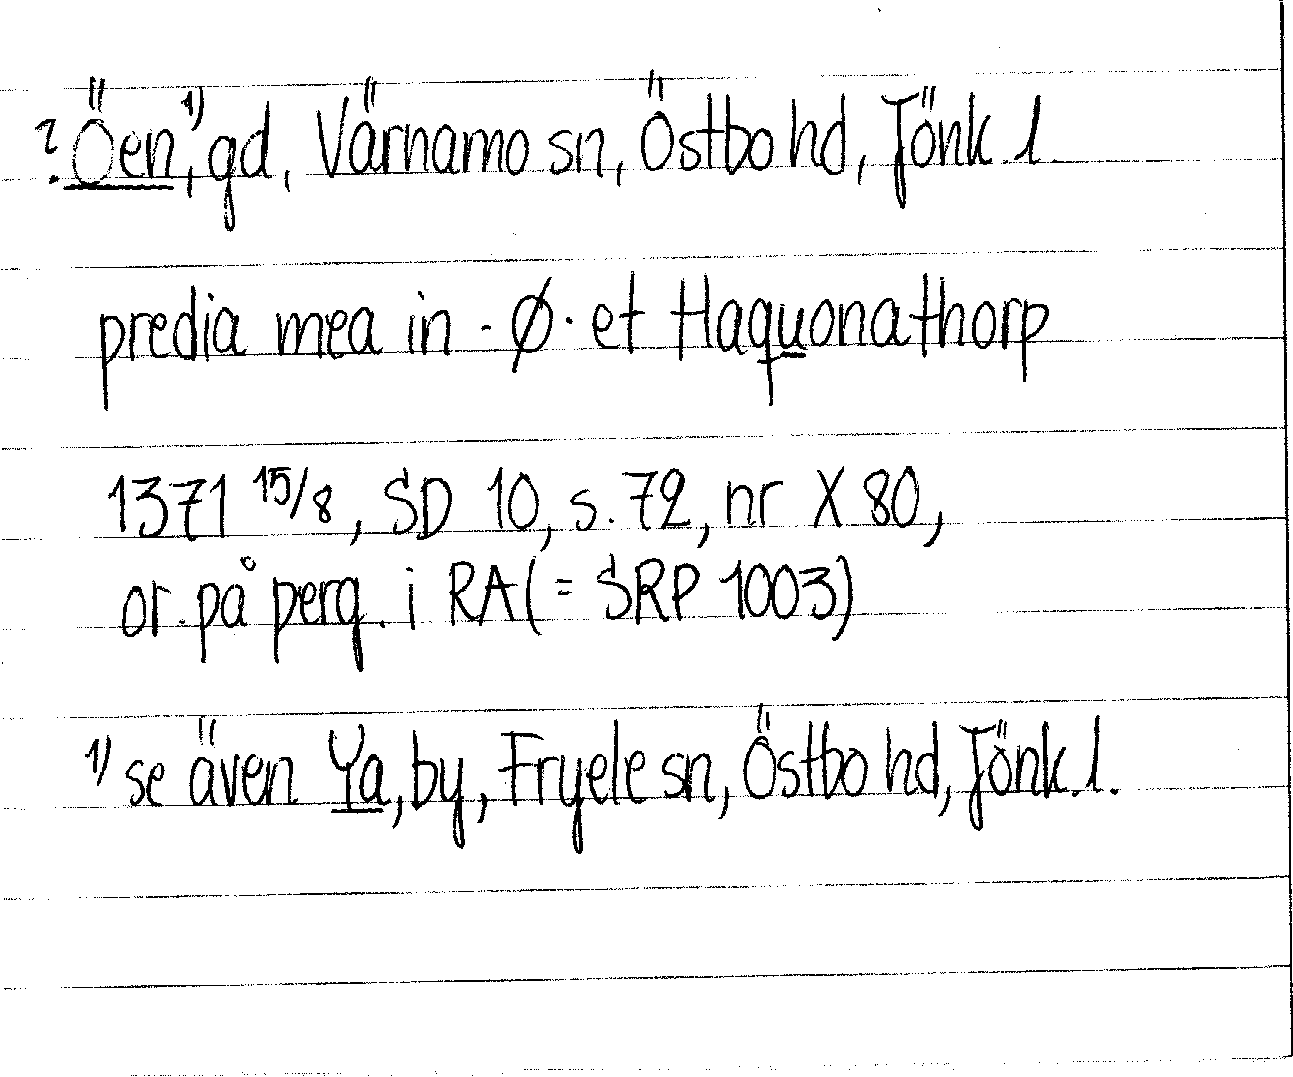 ? Öen¹⁾, gd, Värnamo sn, Östbo hd, Jönk l
predia mea in · Ø · et Haquonathorp
1371 15/8, SD 10, s. 72, nr X 80,
or. på perg. i RA (= SRP 1003)
1) se även Ya, by, Fryele sn, Östbo hd, Jönk. l.